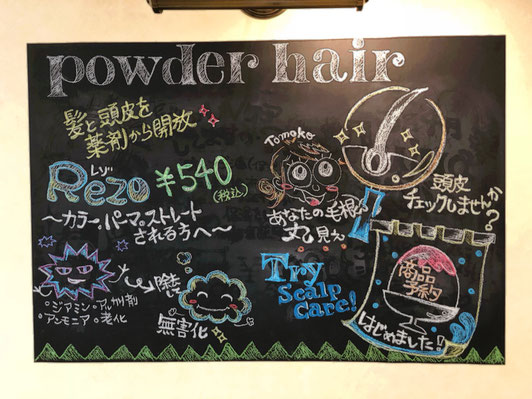 powder hair
髪と頭皮を
薬剤から開放
レゾ
Rezo ¥540
(税込)
～カラー、パーマ、ストレート
される方へ～
○ジアミン ○アルカリ剤
アンモニア ○老化
除去
無害化
Tomoko
あなたの毛根
丸見え
頭皮
チェックしませんか?
Try
Scalp
Care!
商品
予約
はじめました!